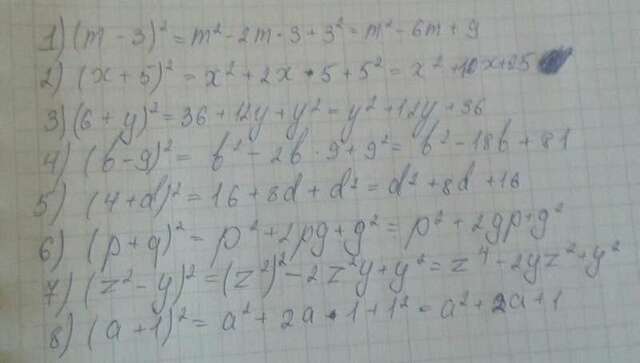 1) (m - 3)² = m² - 2m · 3 + 3² = m² - 6m + 9
2) (x + 5)² = x² + 2x · 5 + 5² = x² + 10x + 25
3) (6 + y)² = 36 + 12y + y² = y² + 12y + 36
4) (b - 9)² = b² - 2b · 9 + 9² = b² - 18b + 81
5) (4 + d)² = 16 + 8d + d² = d² + 8d + 16
6) (p + g)² = p² + 2pg + g² = p² + 2gp + g²
7) (z² - y)² = (z²)² - 2z²y + y² = z⁴ - 2yz² + y²
8) (a + 1)² = a² + 2a · 1 + 1² = a² + 2a + 1